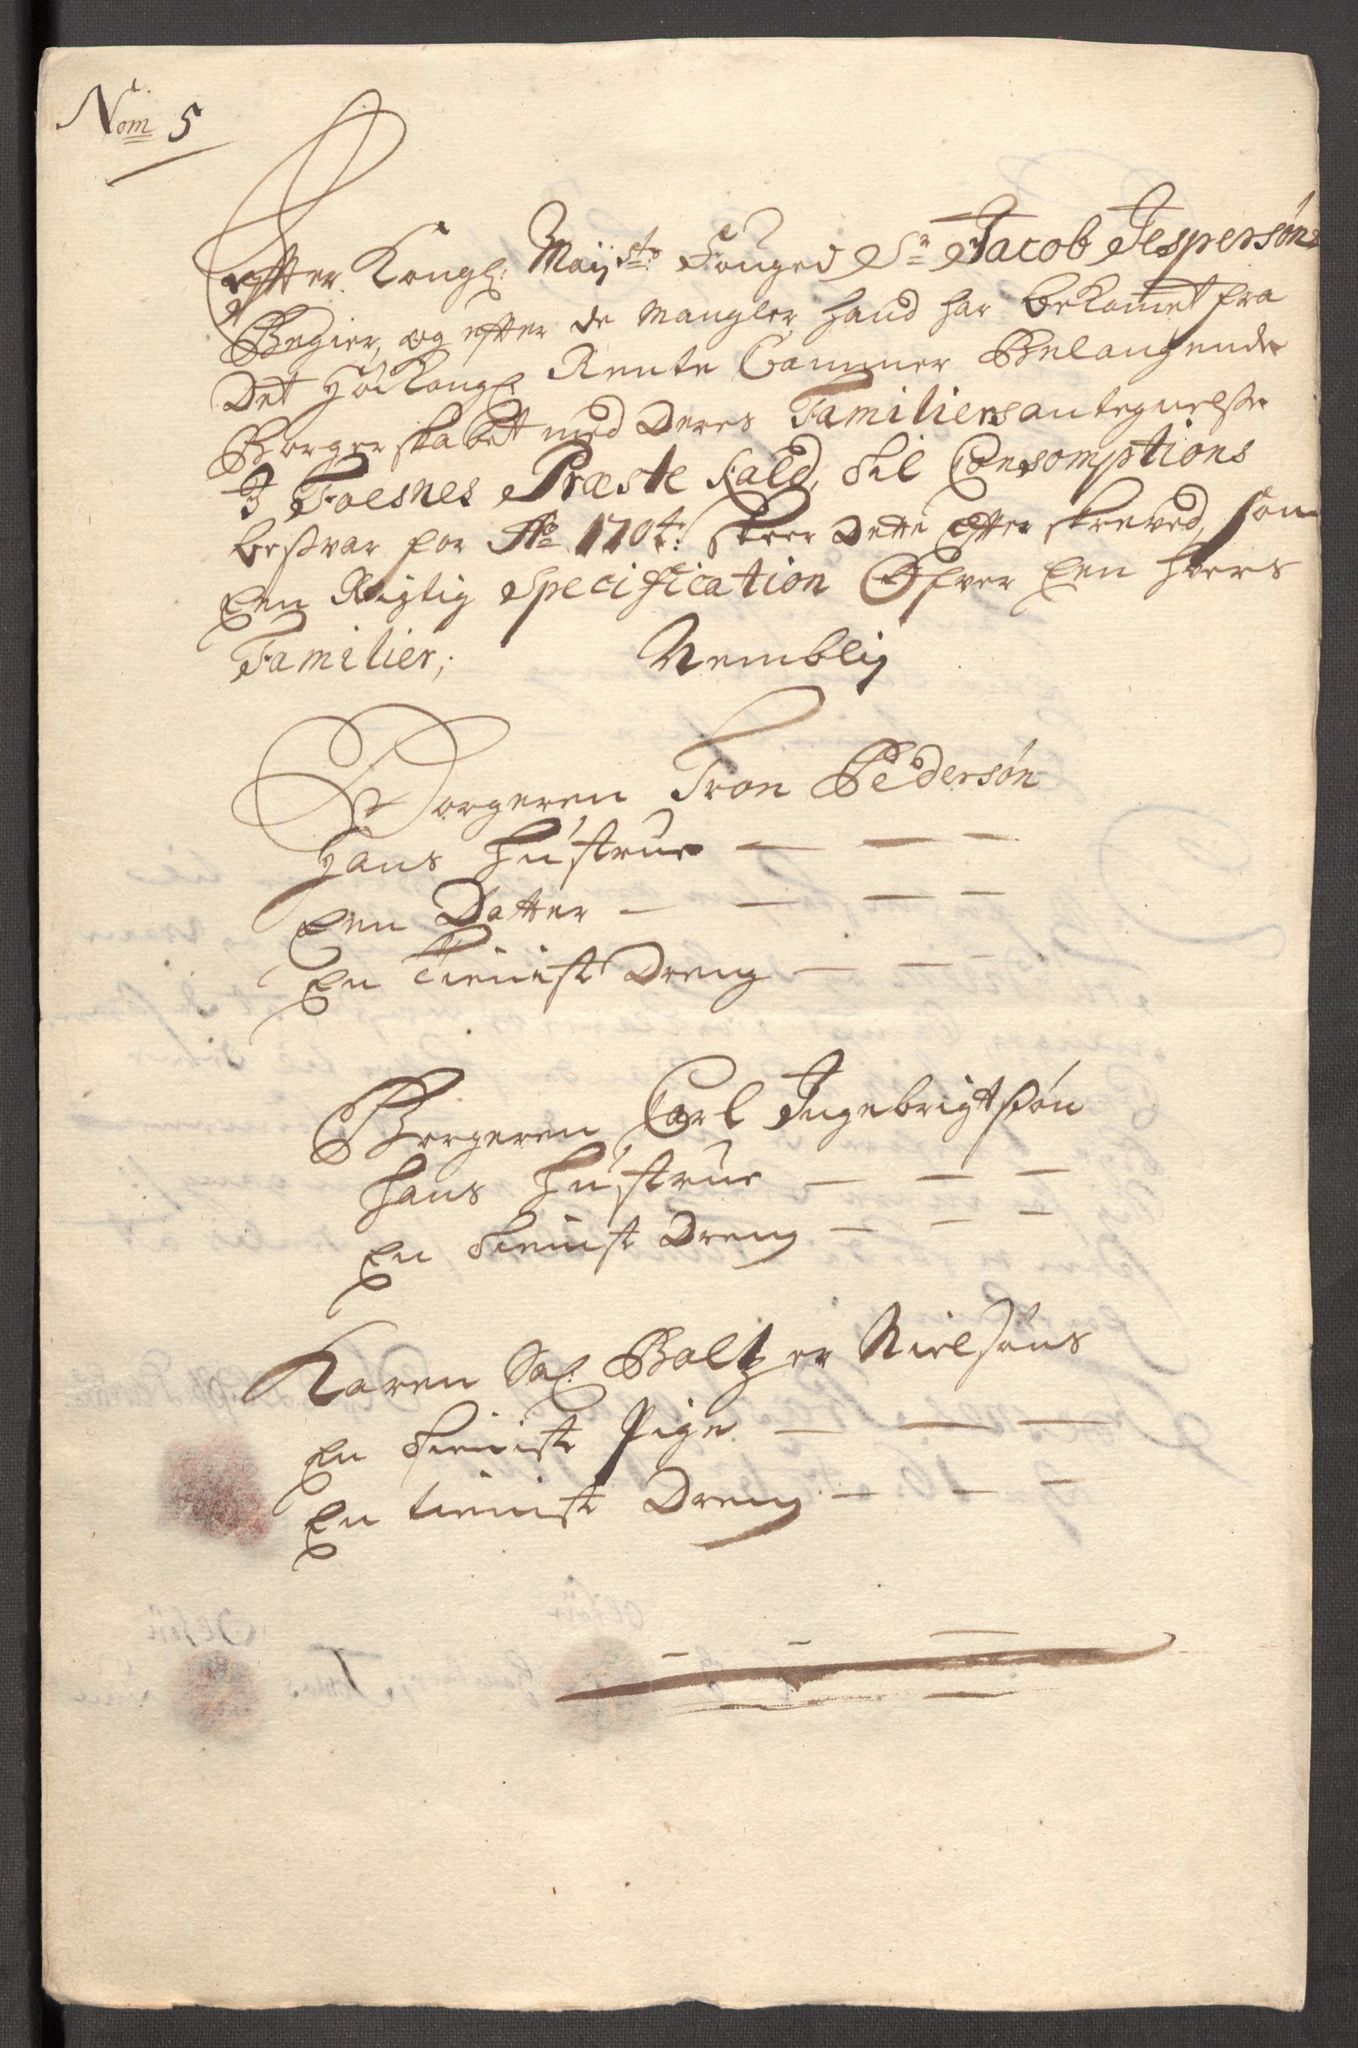 Nom 5
Effter Kongl: Mayts: Fouged Sr Jacob Jespersøns
Begier, og efter de Mangler hand har bekomet fra
Det Høi Kongl: Rente Cammer Belangende
Borgerskabet med Deres Familiers antegnelse
I Foesnes Præste Kald, til Consomptions
besvar for Ao 1704: skeer Dette Efter skreved, som
Een Rigtig Specification Ofver Een hvers
Familier; Nemblig
Borgeren Tron Pedersøn
Hans Hustrue — — —
Een Datter — — — —
En Tienist Dreng — — —
Borgeren Carl Ingebrigtsøn
Hans Hustrue — — —
En tienist Dreng — — —
Karen Sal: Baltzer Nielsøns
En tienist Pige — — —
En tienist Dreng — — —